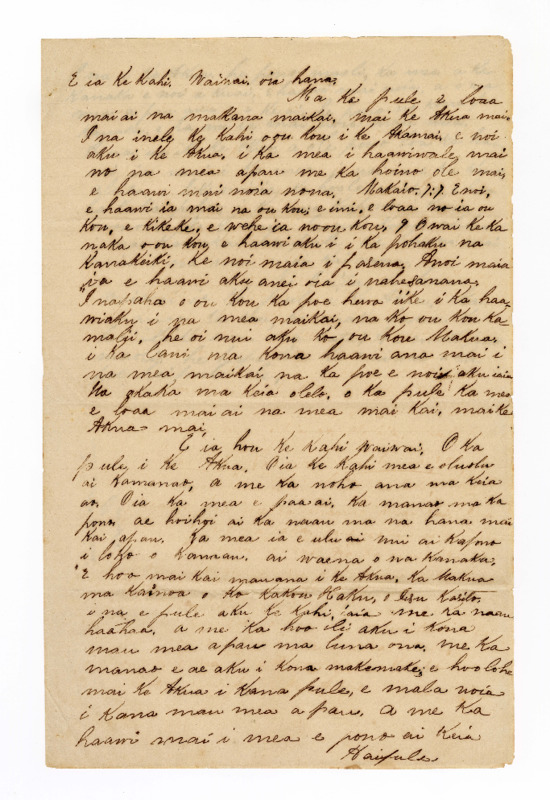 E ia ke kahi. Waiwai. oia hana;
Ma ka pule e loaa
mai ai na makana maikai, mai ke Akua mai.
Ina inele ke kahi o ou kou i ke Akamai, e noi
aku i ke Akua, i ka mea i haawiwale mai
no na mea apau me ka hoino ole mai,
e haawi mai noia nona. Makaio. 7:7. E noi,
e haawi ia mai na ou kou; e imi, e loaa no ia ou
kou, e kikeke, e wehe ia no ou kou, 9 Owai ke ka
naka o ou kou, e haawi aku i i ka pohaku na
kanakeiki, ke noi maia i parena, A noi maia
i'a e haawi aku anei oia i nahesanana.
"Ina paha o ou kou ka poe hewa i ike i ka haa-
wiaku i na mea maikai, na ko ou kou ka
malii, he oi nui aku ko ou kou Makua,
i ka Lani ma kona haawi ana mai i
na mea maikai na ka poe e noi aku iaia
Ua akaka ma keia olelo, o ka pule ka mea
e loaa mai ai na mea mai kai, mai ke
Akua mai,
E ia hou ke kahi waiwai, O ka
pule i ke Akua. Oia ke kahi mea e oluolu
ai ka manao, a me ka noho ana ma keia
ao, Oia ka mea e paa ai, ka manao ma ka
pono ae hoihoi ai ka naau ma na hana mai
kai apau. Ia mea ia e ulu ai nui ai ka pono
i loko o kanaau, ai waena o na kanaka,
"E hoo mai kai mau ana i ke Akua, ka Makua
ma ka inoa o ko kakou Haku, o Iesu Kristo,
i na e pule aku ke kahi, iaia me ka naau
haahaa, a me ka hoo lii aku i kona
mau mea apau ma luna ona, me ka
manao e ae aku i kona makemake; e hoolohe
mai ke Akua i kana pule, e mala noia
i kana mau mea apau, a me ka
haawi mai i mea e pono ai keia
Haipule